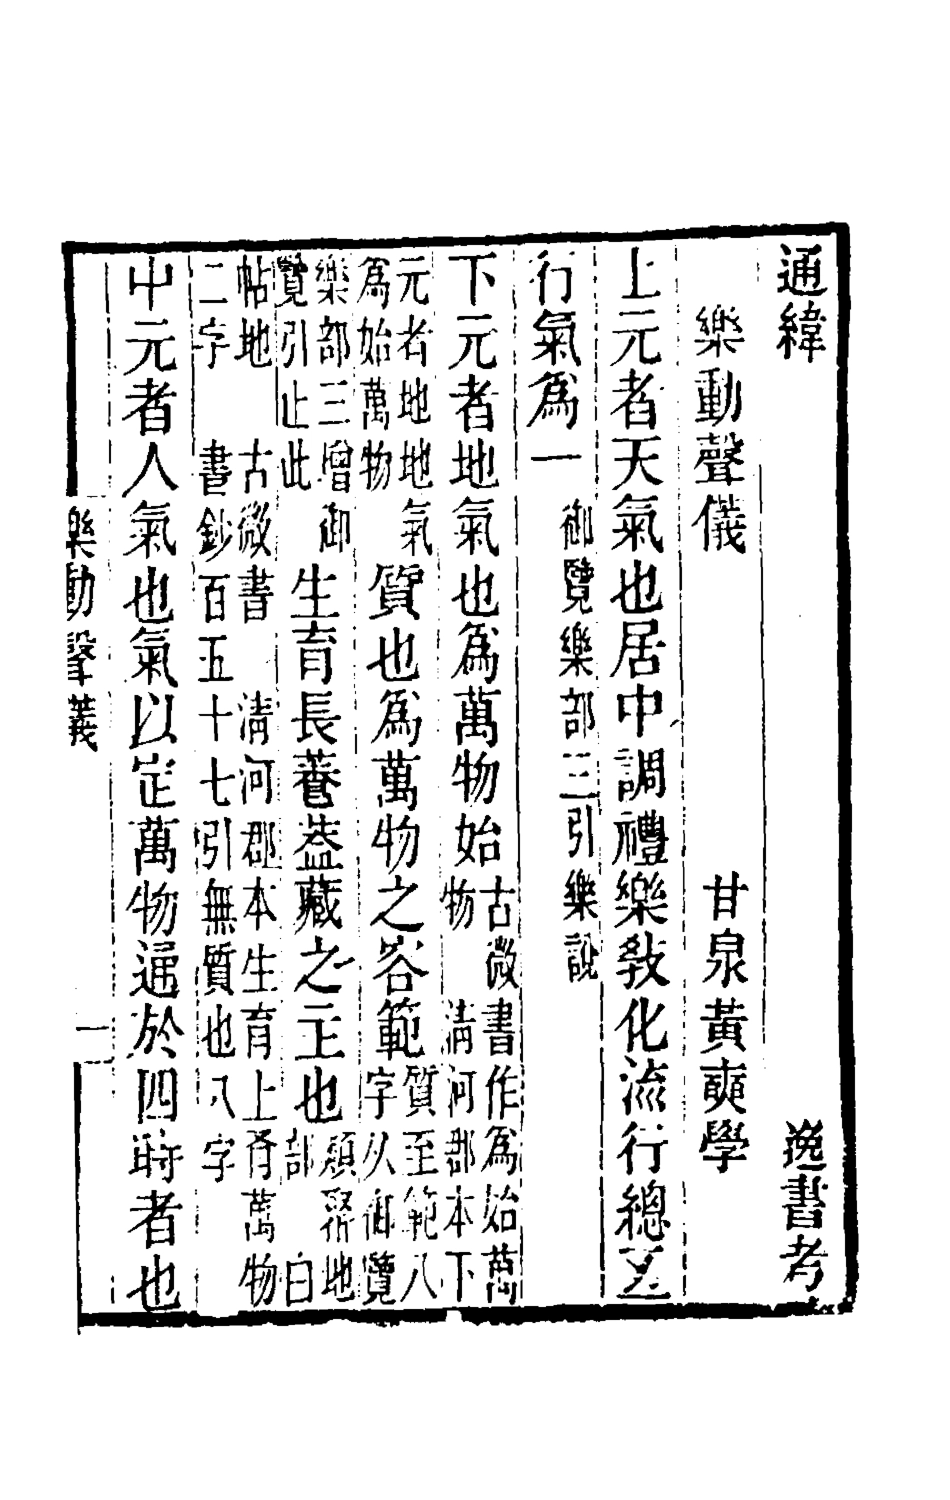 通緯 逸書考
樂動聲儀 甘泉黃奭學
上元者天氣也居中調禮樂敎化流行總五
行氣爲一 御覽樂部三引樂說
下元者地氣也爲萬物始 古微書作爲始萬 物 淸河郡本下
元者地地氣 爲始萬物 質也爲萬物之容範 質至範八 字从御覽
樂部三增御 覽引止此 生育長養蓋藏之主也 類聚地 部 白
帖地 古微書 淸河郡本生育上有萬物
二字 書鈔百五十七引無質也八字
中元者人氣也氣以定萬物通於四時者也
樂動聲義 一